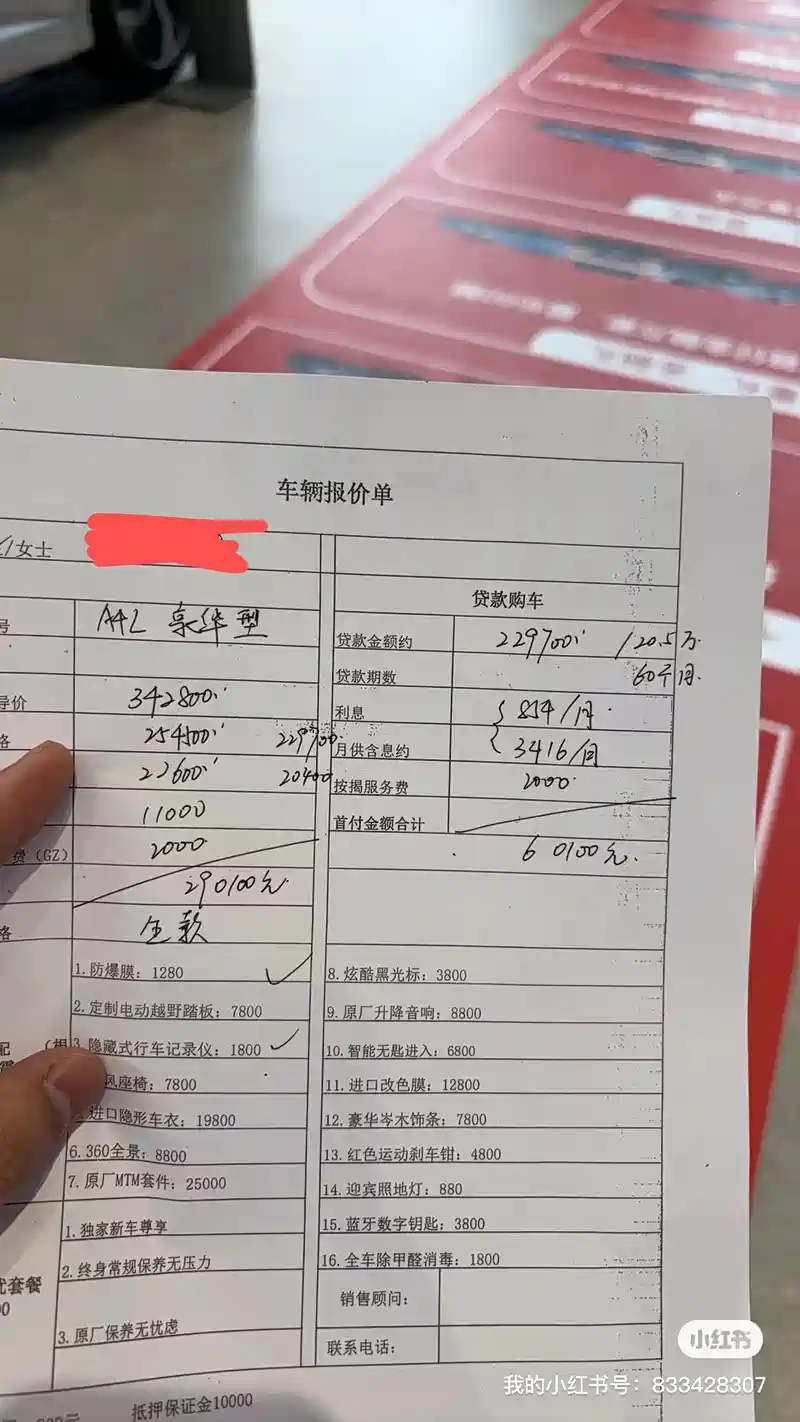 车辆报价单
/女士
号 A4L 豪华型
导价 342800
格 254500 229700
22600 20400
11000
费（GZ） 2000
290100元
格 全款
贷款购车
贷款金额约 229700 /20.5万
贷款期数 60个月
利息 854/月
月供含息约 3416/月
按揭服务费 2000
首付金额合计
60100元
1.防爆膜：1280
2.定制电动越野踏板：7800
3.隐藏式行车记录仪：1800
风座椅：7800
进口隐形车衣：19800
6.360全景：8800
7.原厂MTM套件：25000
8.炫酷黑光标：3800
9.原厂升降音响：8800
10.智能无匙进入：6800
11.进口改色膜：12800
12.豪华岑木饰条：7800
13.红色运动刹车钳：4800
14.迎宾照地灯：880
15.蓝牙数字钥匙：3800
16.全车除甲醛消毒：1800
1.独家新车尊享
2.终身常规保养无压力
3.原厂保养无忧虑
优套餐
销售顾问：
联系电话：
抵押保证金10000
小红书
我的小红书号：833428307